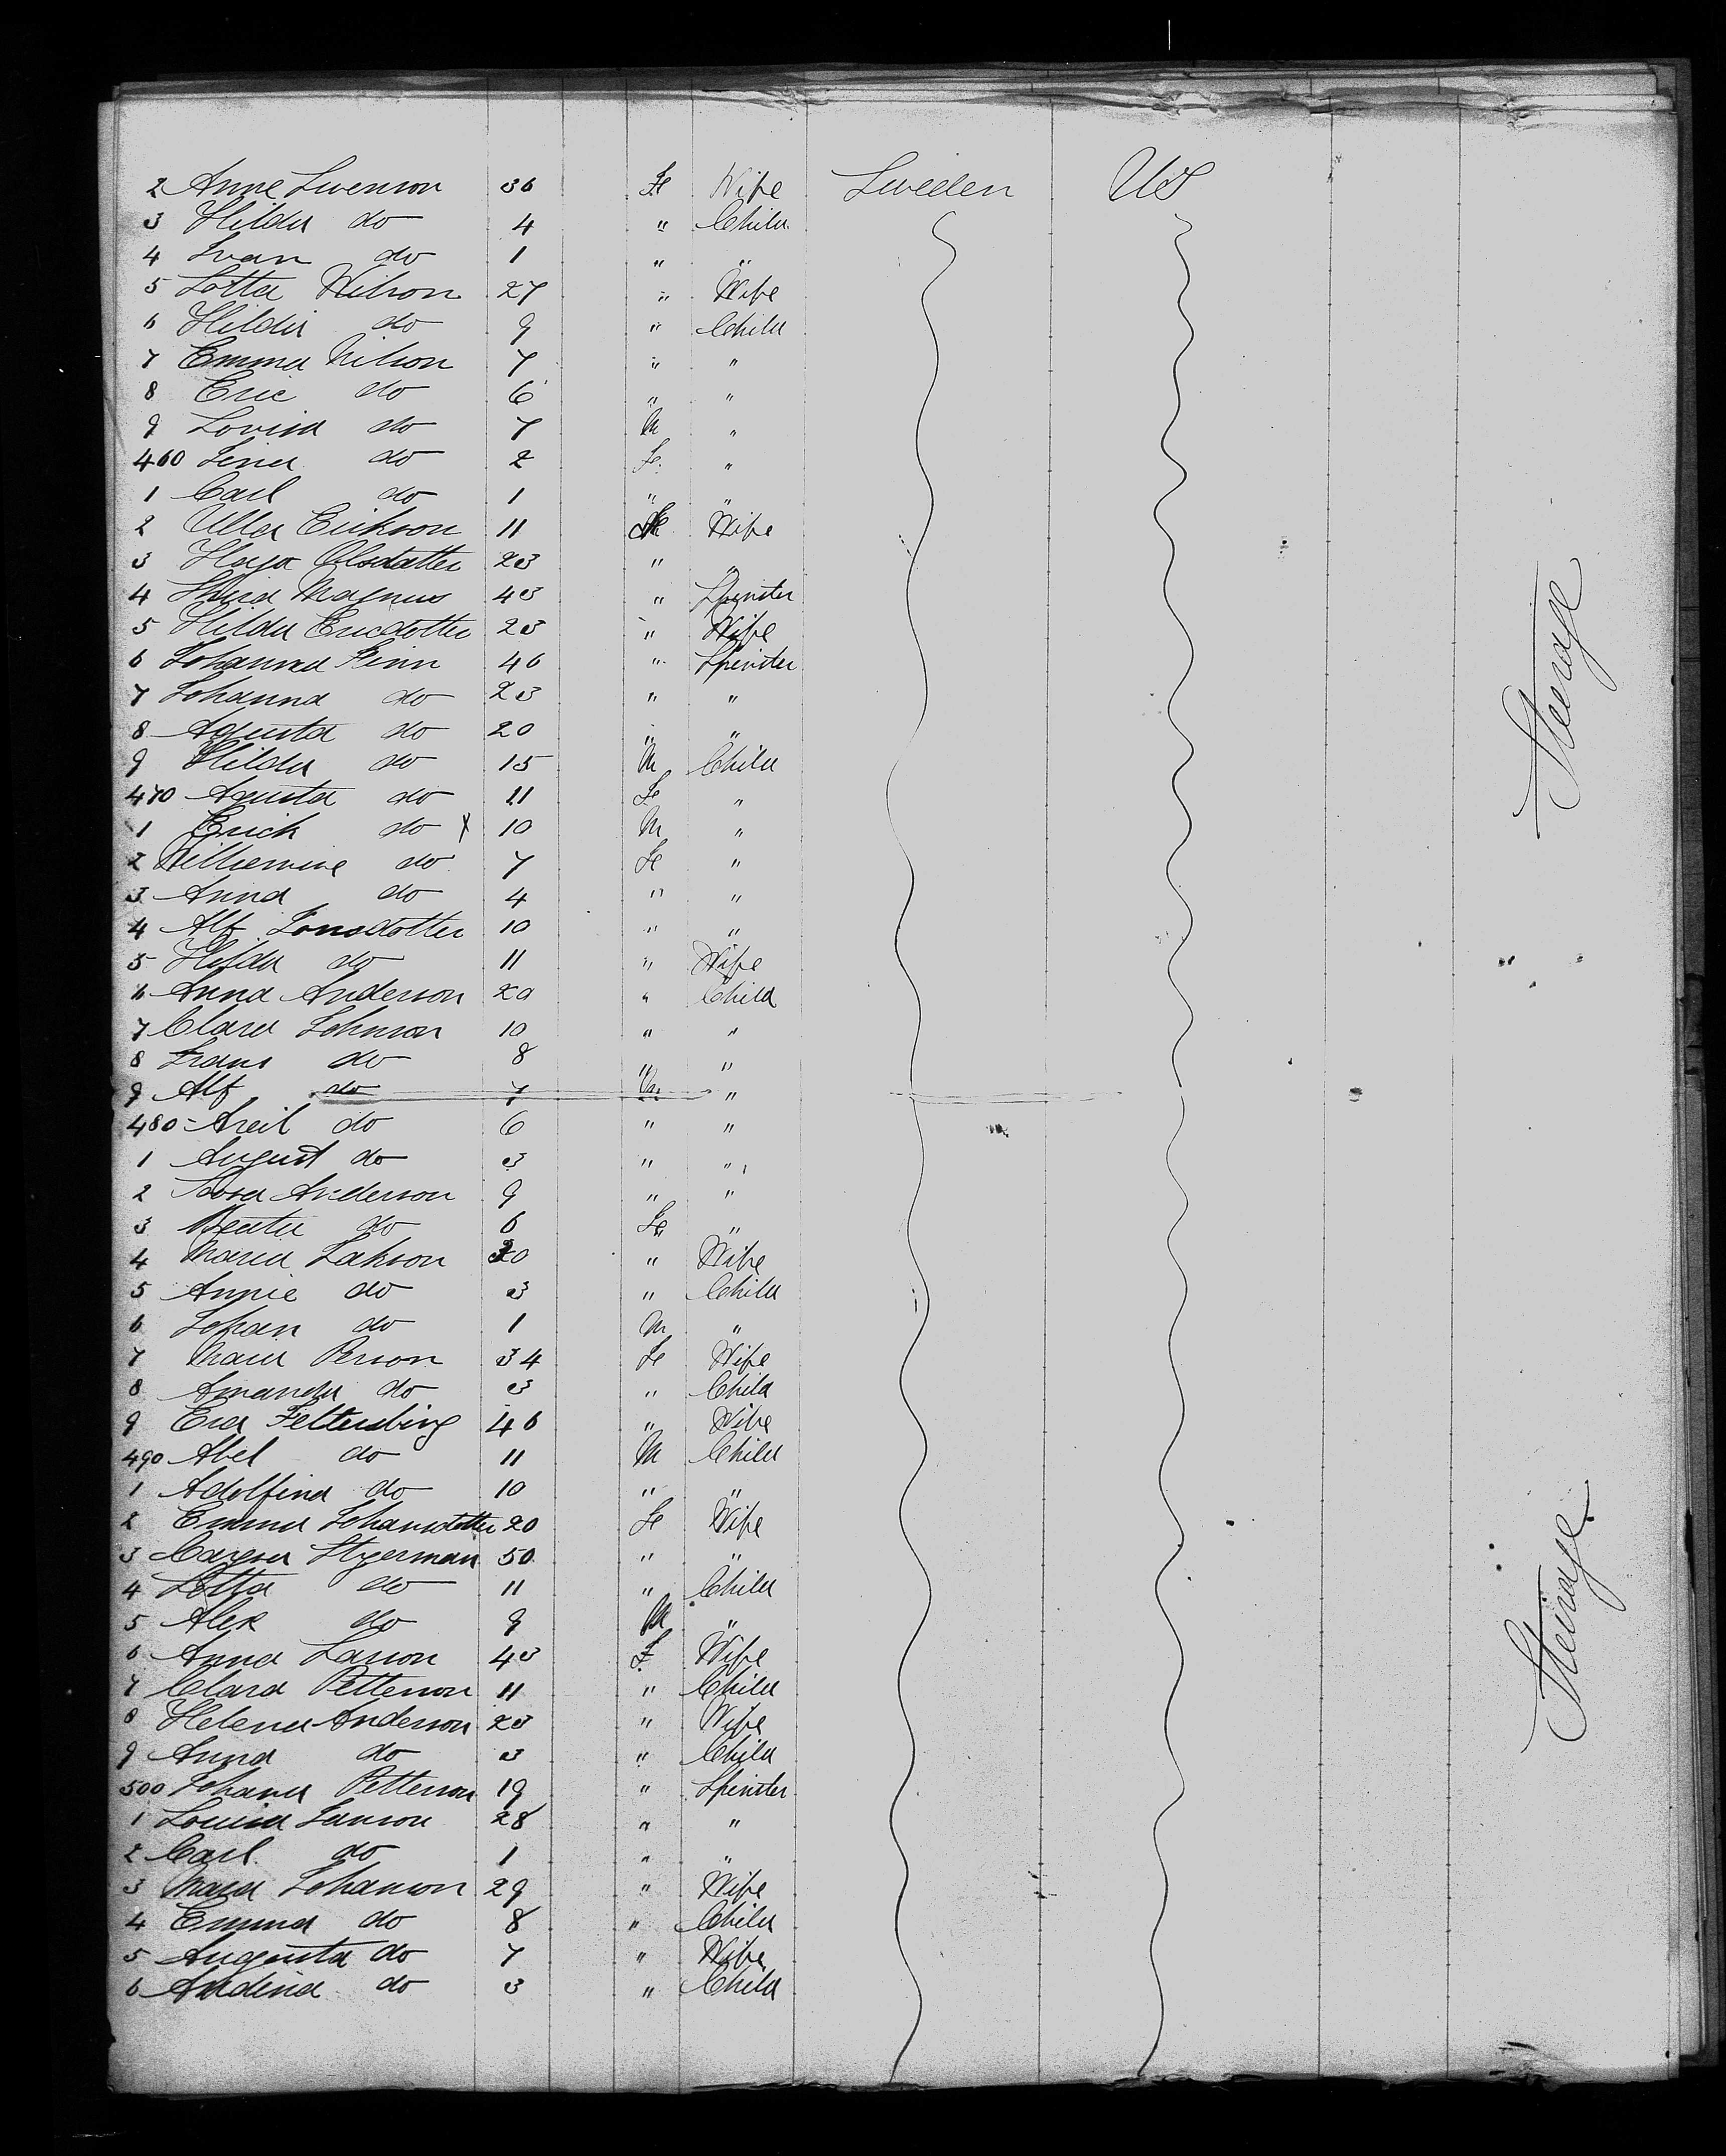 2 Anne Swenson 36 Fe Wife Sweden US
3 Hilda do 4 " Child
4 Ivan do 1 " "
5 Lotta Wilson 27 " Wife
6 Hilda do 9 " Child
7 Emma Nilson 7 " "
8 Eric do 6 " "
9 Lovisa do 7 M "
460 Lina do 2 Fe "
1 Carl do 1 " "
2 Ulla Erikson 11 Fe Wife
3 Olsdatter 23 " "
4 Magnus 43 " Spinster
5 Hilda Ericdotter 23 " Wife
6 Johanna Finn 46 " Spinster
7 Johanna do 23 " "
8 Agusta do 20 " "
9 Hilda do 15 M Child
470 Agusta do 11 Fe "
1 Erick do X 10 M "
2 Willhemine do 7 Fe "
3 Anna do 4 " "
4 Alf Jonsdotter 10 " "
5 Hilda do 11 " Wife
6 Anna Anderson 20 " Child
7 Clara Johnson 10 " "
8 Frans do 8 " "
9 Alf do 7 M "
480 Axeil do 6 " "
1 August do 3 " "
2 Anderson 9 " "
3 Beata do 6 Fe "
4 Maria Jakson 30 " Wife
5 Annie do 3 " Child
6 Johan do 1 M "
7 Maria Person 34 Fe Wife
8 Amanda do 3 " Child
9 Eva 46 " Wife
490 Abel do 11 M Child
1 Adolfina do 10 " "
2 Emma Johansdotter 20 Fe Wife
3 Styerman 50 " "
4 Lotta do 11 " Child
5 Alex do 9 M "
6 Anna Larson 43 F Wife
7 Clara Petterson 11 " Child
8 Helena Anderson 23 " Wife
9 Anna do 3 " Child
500 Johana Petterson 19 " Spinster
1 Louisa Janson 28 " "
2 Carl do 1 " "
3 Maria Johanson 29 " Wife
4 Emma do 8 " Child
5 Augusta do 7 " Wife
6 do 3 " Child
Steerage
Steerage